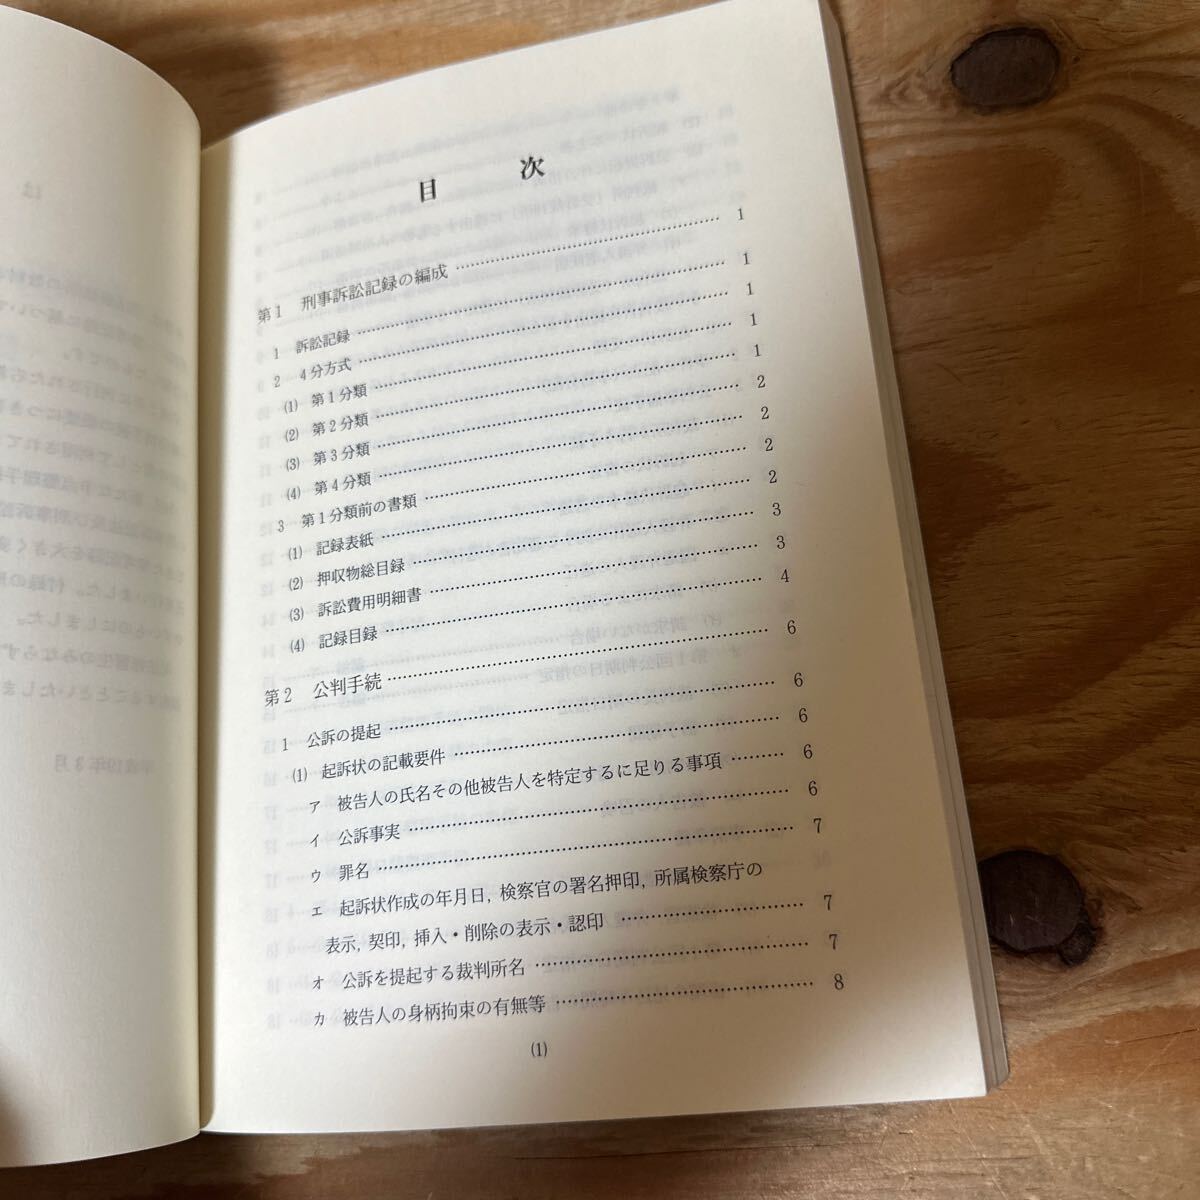 目次
第1 刑事訴訟記録の編成……1
1 訴訟記録……1
2 4分方式……1
(1) 第1分類……1
(2) 第2分類……1
(3) 第3分類……2
(4) 第4分類……2
3 第1分類前の書類……2
(1) 記録表紙……2
(2) 押収物総目録……3
(3) 訴訟費用明細書……3
(4) 記録目録……4
第2 公判手続……6
1 公訴の提起……6
(1) 起訴状の記載要件……6
ア 被告人の氏名その他被告人を特定するに足りる事項……6
イ 公訴事実……6
ウ 罪名……7
エ 起訴状作成の年月日, 検察官の署名押印, 所属検察庁の
表示, 契印, 挿入・削除の表示・認印……7
オ 公訴を提起する裁判所名……7
カ 被告人の身柄拘束の有無等……8
(1)